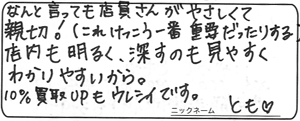 なんと言っても店員さんがやさしくて
親切!(これけっこう一番重要だったりする)
店内も明るく、深すのも見やすく
わかりやすいから。
10%買取UPもウレシイです。
ニックネーム とも♡